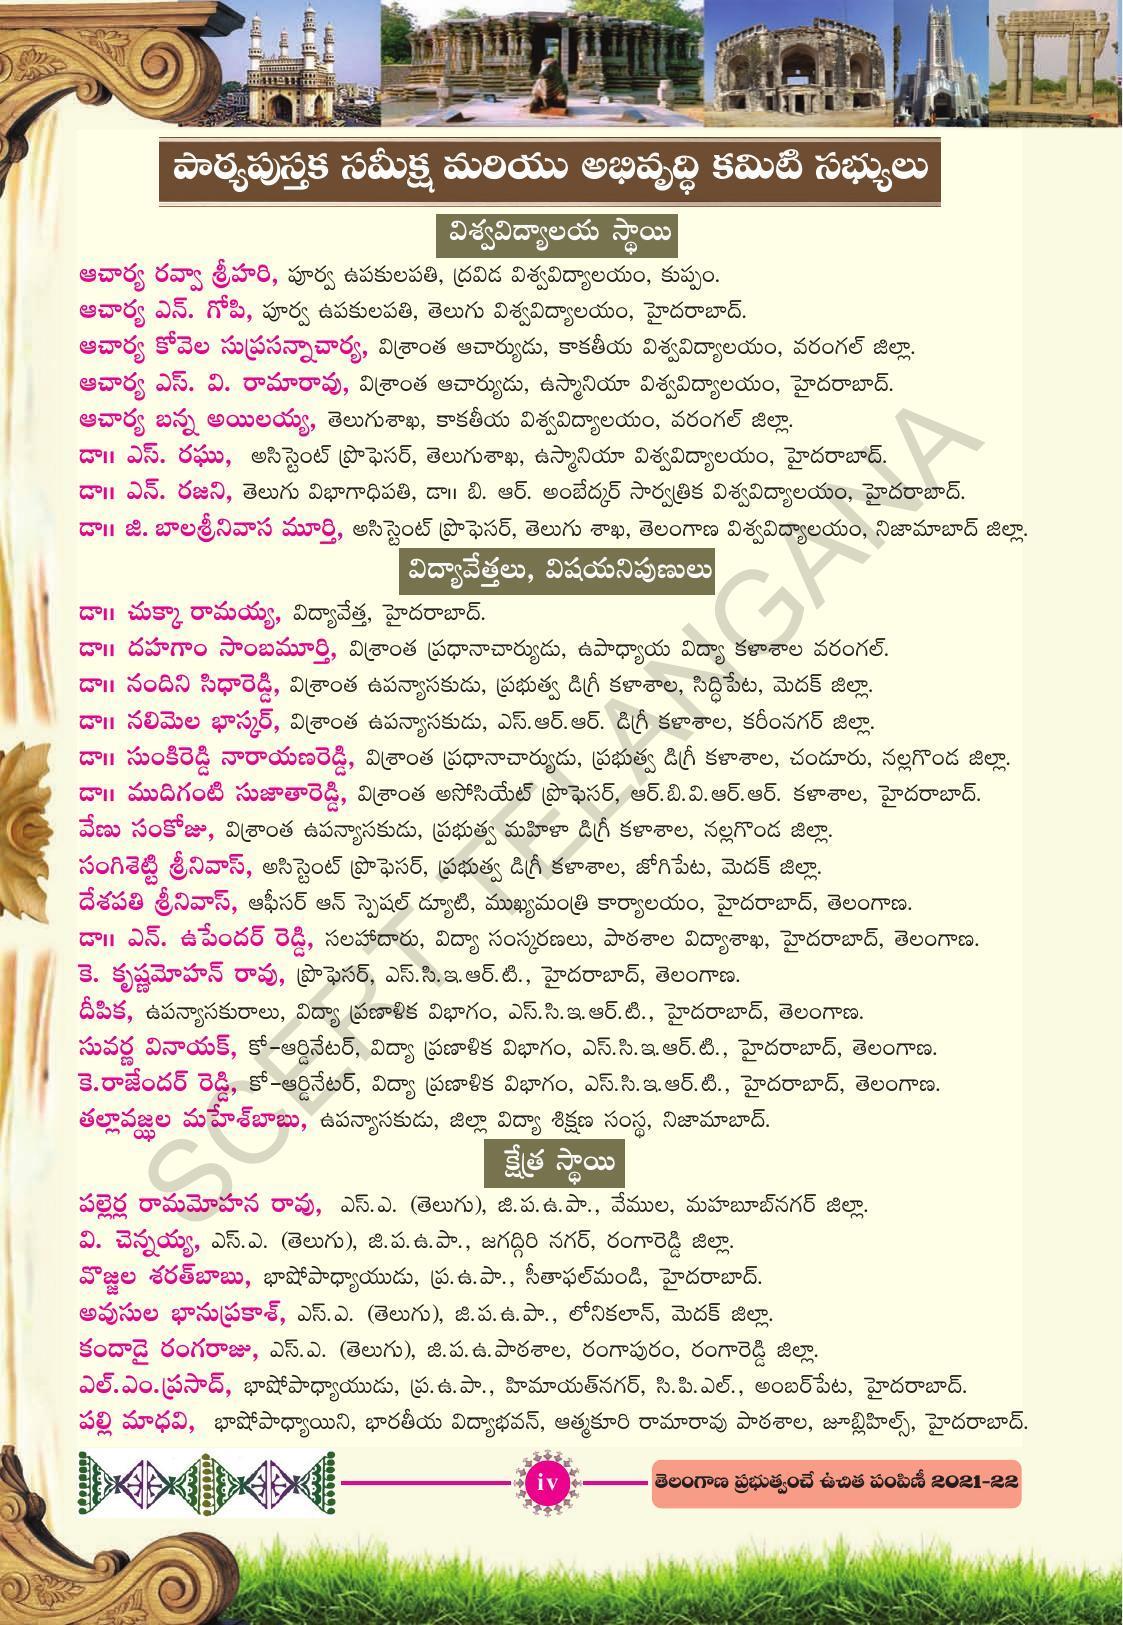 పాఠ్యపుస్తక సమీక్ష మరియు అభివృద్ధి కమిటి సభ్యులు
విశ్వవిద్యాలయ స్థాయి
ఆచార్య రవ్వా శ్రీహరి, పూర్వ ఉపకులపతి, ద్రవిడ విశ్వవిద్యాలయం, కుప్పం.
ఆచార్య ఎన్. గోపి, పూర్వ ఉపకులపతి, తెలుగు విశ్వవిద్యాలయం, హైదరాబాద్.
ఆచార్య కోవెల సుప్రసన్నాచార్య, విశ్రాంత ఆచార్యుడు, కాకతీయ విశ్వవిద్యాలయం, వరంగల్ జిల్లా.
ఆచార్య ఎస్. వి. రామారావు, విశ్రాంత ఆచార్యుడు, ఉస్మానియా విశ్వవిద్యాలయం, హైదరాబాద్.
ఆచార్య బన్న అయిలయ్య, తెలుగుశాఖ, కాకతీయ విశ్వవిద్యాలయం, వరంగల్ జిల్లా.
డా॥ ఎస్. రఘు, అసిస్టెంట్ ప్రొఫెసర్, తెలుగుశాఖ, ఉస్మానియా విశ్వవిద్యాలయం, హైదరాబాద్.
డా॥ ఎన్. రజని, తెలుగు విభాగాధిపతి, డా॥ బి. ఆర్. అంబేద్కర్ సార్వత్రిక విశ్వవిద్యాలయం, హైదరాబాద్.
డా॥ జి. బాలశ్రీనివాస మూర్తి, అసిస్టెంట్ ప్రొఫెసర్, తెలుగు శాఖ, తెలంగాణ విశ్వవిద్యాలయం, నిజామాబాద్ జిల్లా.
విద్యావేత్తలు, విషయనిపుణులు
డా॥ చుక్కా రామయ్య, విద్యావేత్త, హైదరాబాద్.
డా॥ దహగాం సాంబమూర్తి, విశ్రాంత ప్రధానాచార్యుడు, ఉపాధ్యాయ విద్యా కళాశాల వరంగల్.
డా॥ నందిని సిధారెడ్డి, విశ్రాంత ఉపన్యాసకుడు, ప్రభుత్వ డిగ్రీ కళాశాల, సిద్ధిపేట, మెదక్ జిల్లా.
డా॥ నలిమెల భాస్కర్, విశ్రాంత ఉపన్యాసకుడు, ఎస్.ఆర్.ఆర్. డిగ్రీ కళాశాల, కరీంనగర్ జిల్లా.
డా॥ సుంకిరెడ్డి నారాయణరెడ్డి, విశ్రాంత ప్రధానాచార్యుడు, ప్రభుత్వ డిగ్రీ కళాశాల, చండూరు, నల్లగొండ జిల్లా.
డా॥ ముదిగంటి సుజాతారెడ్డి, విశ్రాంత అసోసియేట్ ప్రొఫెసర్, ఆర్.బి.వి.ఆర్.ఆర్. కళాశాల, హైదరాబాద్.
వేణు సంకోజు, విశ్రాంత ఉపన్యాసకుడు, ప్రభుత్వ మహిళా డిగ్రీ కళాశాల, నల్లగొండ జిల్లా.
సంగిశెట్టి శ్రీనివాస్, అసిస్టెంట్ ప్రొఫెసర్, ప్రభుత్వ డిగ్రీ కళాశాల, జోగిపేట, మెదక్ జిల్లా.
దేశపతి శ్రీనివాస్, ఆఫీసర్ ఆన్ స్పెషల్ డ్యూటి, ముఖ్యమంత్రి కార్యాలయం, హైదరాబాద్, తెలంగాణ.
డా॥ ఎన్. ఉపేందర్ రెడ్డి, సలహాదారు, విద్యా సంస్కరణలు, పాఠశాల విద్యాశాఖ, హైదరాబాద్, తెలంగాణ.
కె. కృష్ణమోహన్ రావు, ప్రొఫెసర్, ఎస్.సి.ఇ.ఆర్.టి., హైదరాబాద్, తెలంగాణ.
దీపిక, ఉపన్యాసకురాలు, విద్యా ప్రణాళిక విభాగం, ఎస్.సి.ఇ.ఆర్.టి., హైదరాబాద్, తెలంగాణ.
సువర్ణ వినాయక్, కో-ఆర్డినేటర్, విద్యా ప్రణాళిక విభాగం, ఎస్.సి.ఇ.ఆర్.టి., హైదరాబాద్, తెలంగాణ.
కె.రాజేందర్ రెడ్డి, కో-ఆర్డినేటర్, విద్యా ప్రణాళిక విభాగం, ఎస్.సి.ఇ.ఆర్.టి., హైదరాబాద్, తెలంగాణ.
తల్లావజ్ఝల మహేశ్‌బాబు, ఉపన్యాసకుడు, జిల్లా విద్యా శిక్షణ సంస్థ, నిజామాబాద్.
క్షేత్ర స్థాయి
పల్లెర్ల రామమోహన రావు, ఎస్.ఎ. (తెలుగు), జి.ప.ఉ.పా., వేముల, మహబూబ్‌నగర్ జిల్లా.
వి. చెన్నయ్య, ఎస్.ఎ. (తెలుగు), జి.ప.ఉ.పా., జగద్గిరి నగర్, రంగారెడ్డి జిల్లా.
వొజ్జల శరత్‌బాబు, భాషోపాధ్యాయుడు, ప్ర.ఉ.పా., సీతాఫల్‌మండి, హైదరాబాద్.
అవుసుల భానుప్రకాశ్, ఎస్.ఎ. (తెలుగు), జి.ప.ఉ.పా., లోనికలాన్, మెదక్ జిల్లా.
కందాడై రంగరాజు, ఎస్.ఎ. (తెలుగు), జి.ప.ఉ.పాఠశాల, రంగాపురం, రంగారెడ్డి జిల్లా.
ఎల్.ఎం.ప్రసాద్, భాషోపాధ్యాయుడు, ప్ర.ఉ.పా., హిమాయత్‌నగర్, సి.పి.ఎల్., అంబర్‌పేట, హైదరాబాద్.
పల్లి మాధవి, భాషోపాధ్యాయిని, భారతీయ విద్యాభవన్, ఆత్మకూరి రామారావు పాఠశాల, జూబ్లిహిల్స్, హైదరాబాద్.
SCERT TELANGANA
iv
తెలంగాణ ప్రభుత్వంచే ఉచిత పంపిణీ 2021-22